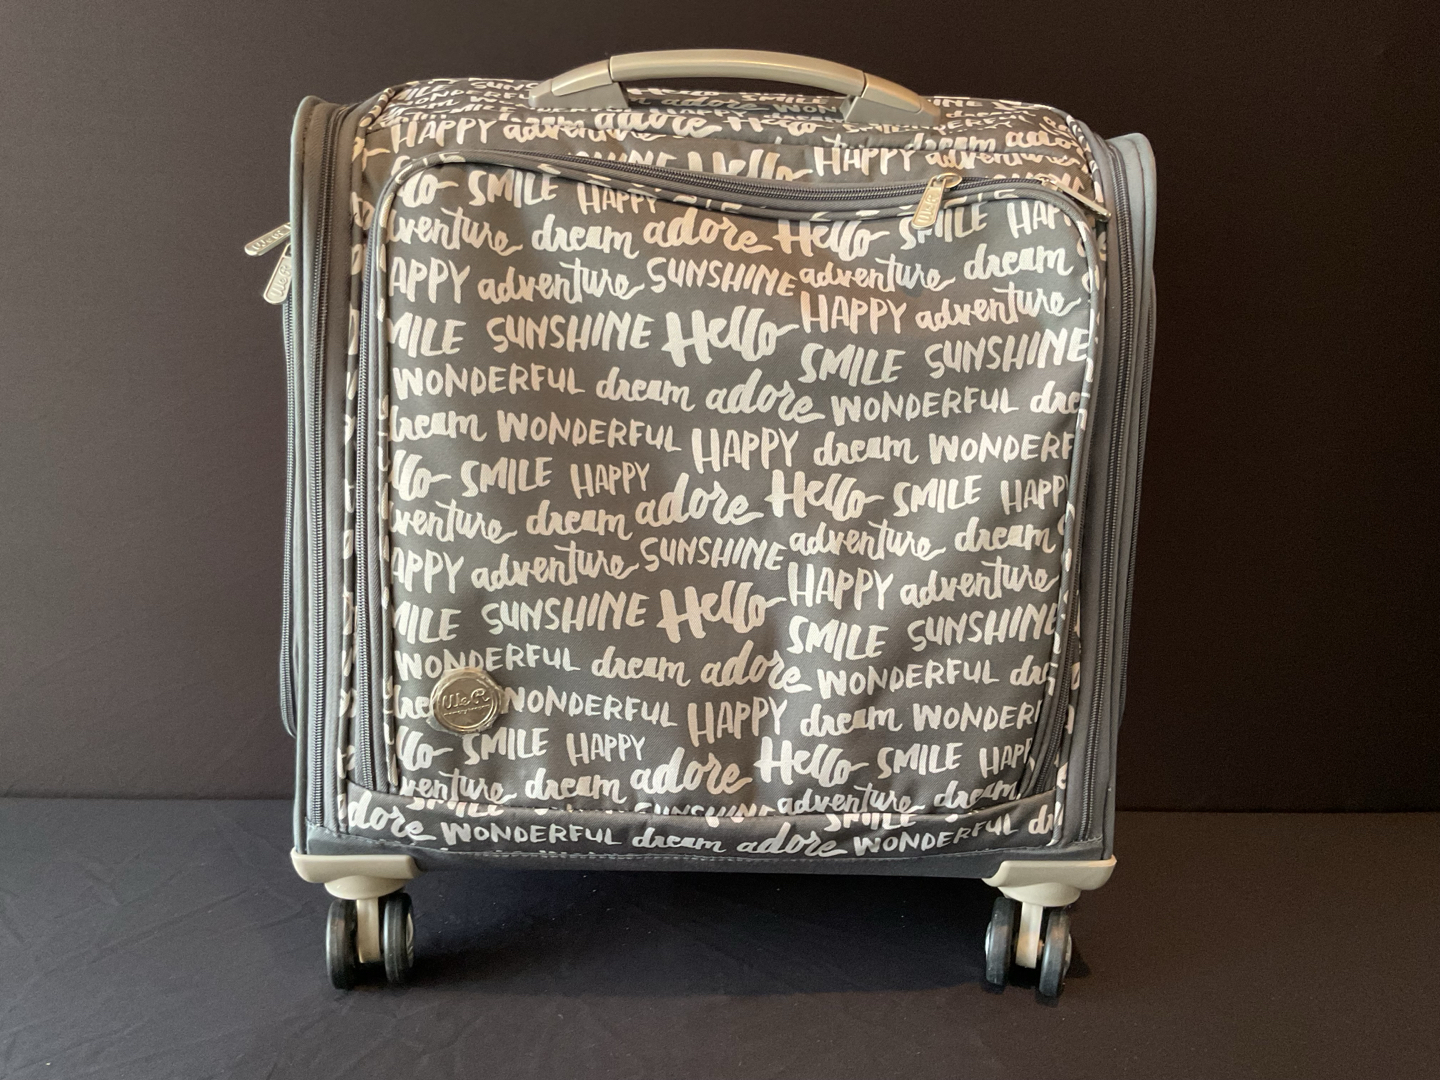 HAPPY adventure adore Hello HAPPY adventure
SMILE HAPPY
adventure dream adore Hello SMILE HAP
APPY adventure SUNSHINE adventure dream
MILE SUNSHINE Hello HAPPY adventure
SMILE SUNSHINE
WONDERFUL dream adore WONDERFUL dre
dream WONDERFUL HAPPY dream WONDERF
llo SMILE HAPPY adore Hello SMILE HAPP
venture dream adventure dream
APPY adventure SUNSHINE HAPPY adventure
MILE SUNSHINE Hello SMILE SUNSHINE
WONDERFUL dream adore WONDERFUL dre
dre WeR WONDERFUL HAPPY dream WONDER
llo SMILE HAPPY Hello SMILE HAPP
venture dream adore adventure dream
SMILE SUNSHINE SMILE
adore WONDERFUL dream adore WONDERFUL